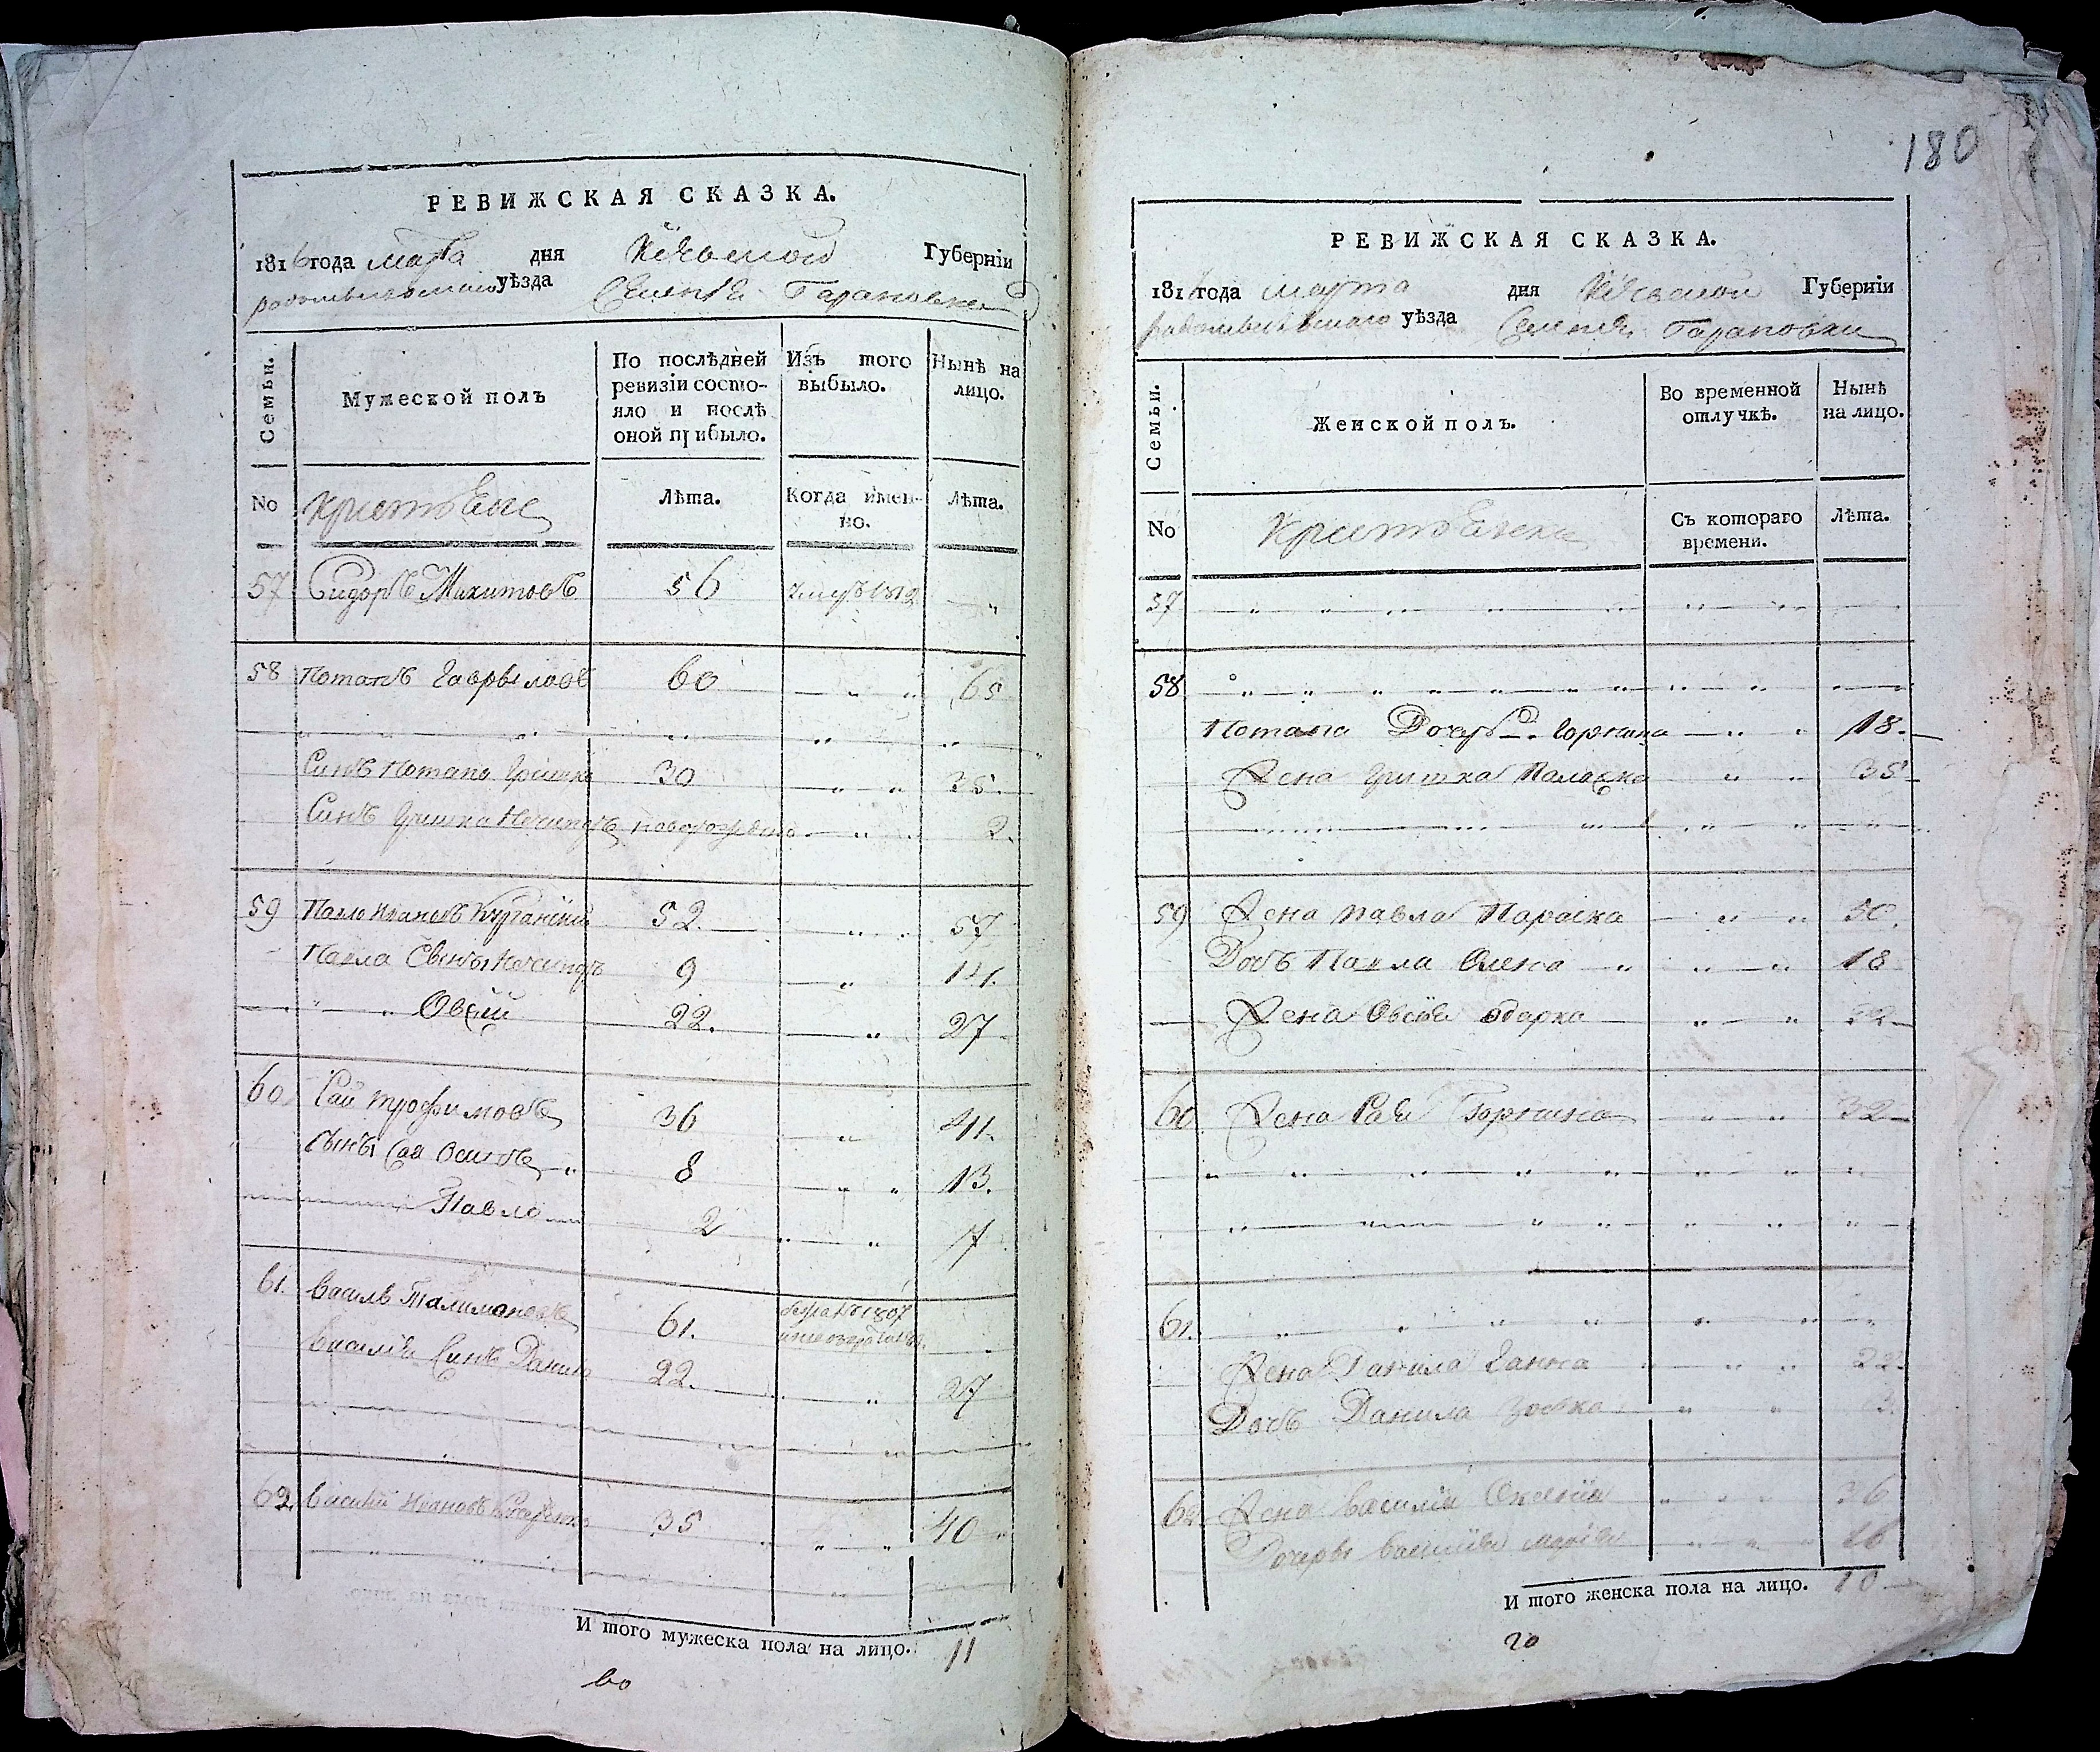 РЕВИЖСКАЯ СКАЗКА.
1816 года марта дня Кіевской Губерніи
радомысльскаго уѣзда Селенія Тарановки
Семьи.
Мужеской полъ
По послѣдней ревизіи состо-
яло и послѣ
оной прибыло.
Изъ того
выбыло.
Нынѣ на
лицо.
No
Лѣта.
Когда имен-
но.
Лѣта.
57 Сидоръ Микитовъ 56
58 Потапъ Гаврыловъ 60 65
Синъ Потапа Гришка 30 35.
Синъ Гришка Нечипоръ новорожденъ 2.
59 Павло Ивановъ 52. 57
Павла Сыны Нечипоръ 9 14.
Овсѣй 22. 27
60 Сай трофимовъ 36 41.
Сыны Сая Осипъ 8 13.
Павло 2 7
61. Василь 61. 1807
Василія Синъ Данило 22. 27
62. Василій Ивановъ 35 40
И того мужеска пола на лицо. 11
во
180
РЕВИЖСКАЯ СКАЗКА.
1816 года марта дня Кіевской Губерніи
радомысльскаго уѣзда Селенія Тарановки
Семьи.
Женской полъ.
Во временной
отлучкѣ.
Нынѣ
на лицо.
No
Съ котораго
времени.
Лѣта.
57
58
Потапа Дочеръ Горпина 18.
Жена Гришка Палажка 35
59 Жена Павла Параска 50.
Дочь Павла Олена 18
Жена Овсія одарка 22
60 Жена Сая Горпина 32
61.
Жена Данила Ганна 22.
Дочь Данила 3.
62. Жена Василія 36
Дочерь Василія марія 16
И того женска пола на лицо. 10
20